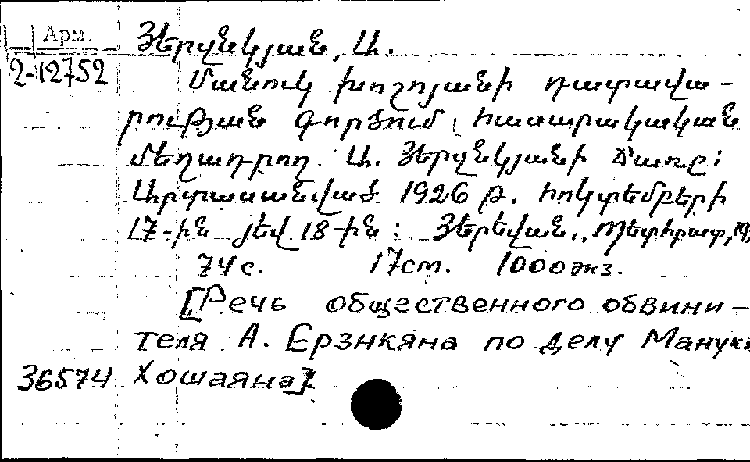 Арм.
2-12752
Յերզնկյան, Ա.
Մանուկ Խոշոյանի դատավա-
րության գործում հասարակական
մեղադրող Ա. Յերզնկյանի ճառը:
Արտասանված 1926 թ. հոկտեմբերի
17-ին յեվ 18-ին: Յերեվան, Պետհրատ,
74 с. 17 cm. 1000 экз.
[Речь общественного обвини-
теля А. Ерзнкяна по делу Манука
36574 Хошаяна]